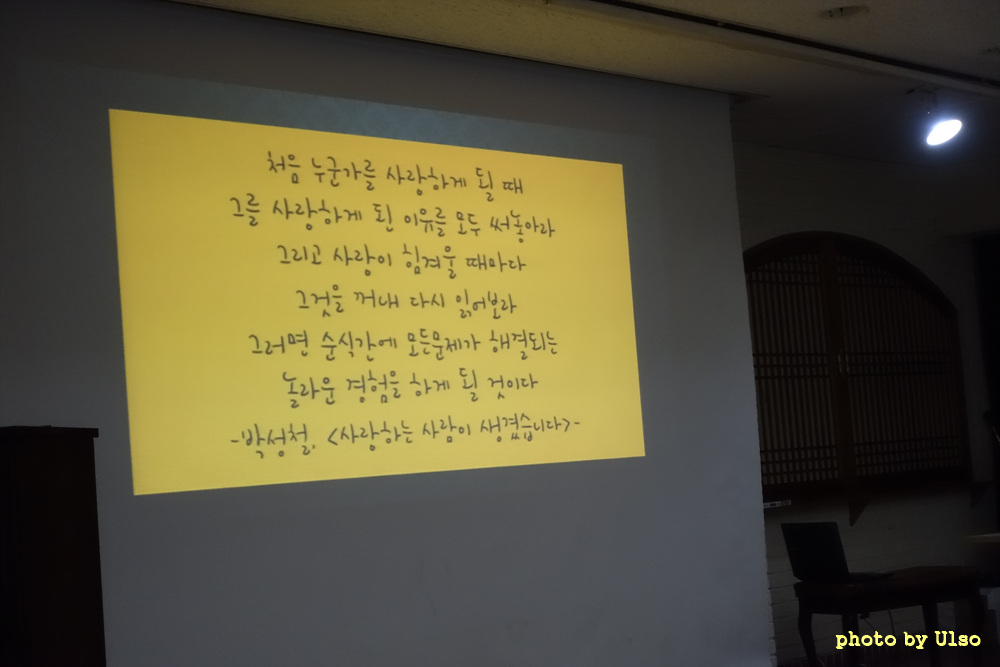 처음 누군가를 사랑하게 될 때
그를 사랑하게 된 이유를 모두 써놓아라
그리고 사랑이 힘겨울 때마다
그것을 꺼내 다시 읽어보라
그러면 순식간에 모든문제가 해결되는
놀라운 경험을 하게 될 것이다
-박성철, <사랑하는 사람이 생겼습니다>-
photo by Ulso